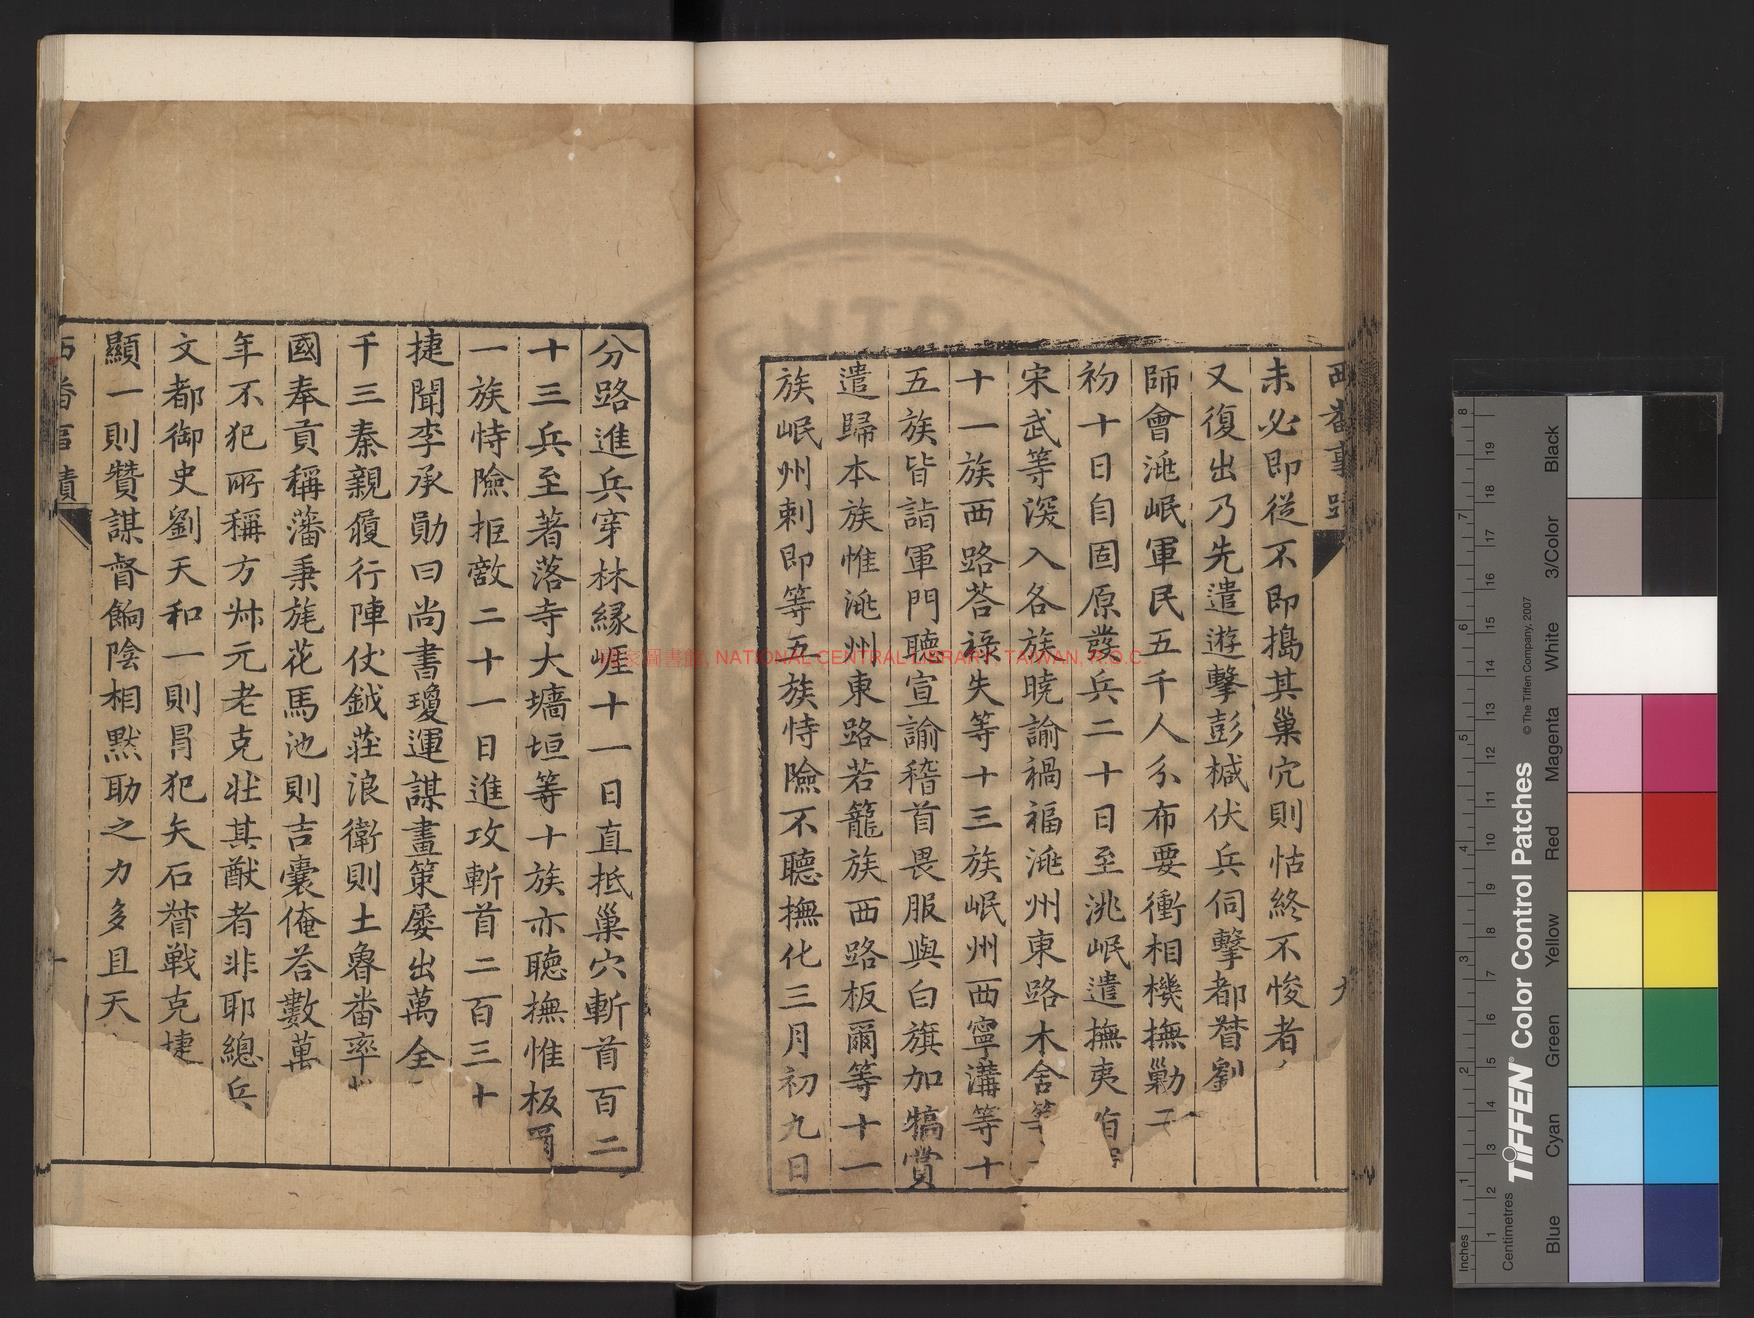 西番事蹟
九
未必即從不即搗其巢穴則怙終不悛者
又復出乃先遣遊擊彭椷伏兵伺擊都督劉
師會洮岷軍民五千人分布要衝相機撫勦
初十日自固原發兵二十日至洮岷遣撫夷
宋武等深入各族曉諭禍福洮州東路木舍等
十一族西路答祿失等十三族岷州西寧溝等十
五族皆詣軍門聽宣諭稽首畏服與白旗加犒賞
遣歸本族惟洮州東路若籠族西路板爾等十一
族岷州剌即等五族恃險不聽撫化三月初九日
分路進兵穿林緣崕十一日直抵巢穴斬首百二
十三兵至著落寺大墻垣等十族亦聽撫惟板爾
一族恃險拒敵二十一日進攻斬首二百三十
捷聞李承勛曰尚書瓊運謀畫策屡出萬全
千三秦親履行陣仗鉞莊浪衛則土魯番率
國奉貢稱藩秉旄花馬池則吉囊俺荅數萬
年不犯所稱方叔元老克壯其猷者非耶總兵
文都御史劉天和一則冐犯矢石督戰克捷
顯一則贊謀督餉陰相默助之力多且天
西番事蹟
十
國家圖書館, NATIONAL CENTRAL LIBRARY, TAIWAN, R.O.C
Inches
Centimetres
TIFFEN® Color Control Patches
© The Tiffen Company, 2007
Blue
Cyan
Green
Yellow
Red
Magenta
White
3/Color
Black